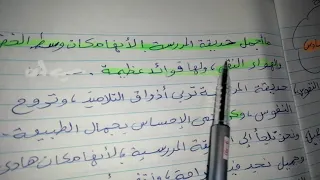 ما أجمل حديقة المدرسة! لأنها مكان وسط القسم
والهواء النقي، ولها فوائد عظيمة.
حديقة المدرسة تربي أذواق التلاميذ، وتروح
النفوس، الإحساس بجمال الطبيعة.
ونحن نلجأ إلى المدرسية، لأنها مكان هادئ
وجميل نجد فيه